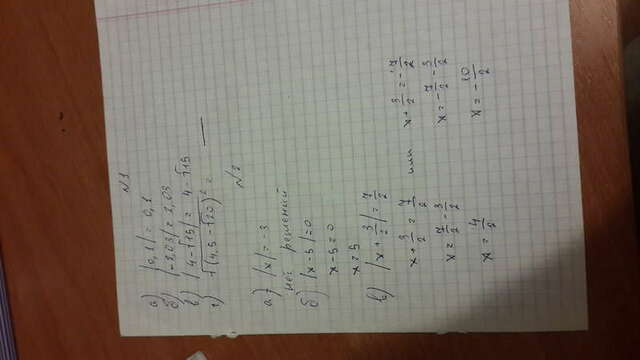 №1
а) |0,1| = 0,1
б) |-2,03| = 2,03
в) |4-√15| = 4-√15
г) √(4,5-√20)² = —
№2
а) |x| = -3
нет решений
б) |x-5|=0
x-5=0
x=5
в) |x + 3/2| = 7/2
x + 3/2 = 7/2 или x + 3/2 = -7/2
x = 7/2 - 3/2 x = -7/2 - 3/2
x = 4/2 x = -10/2